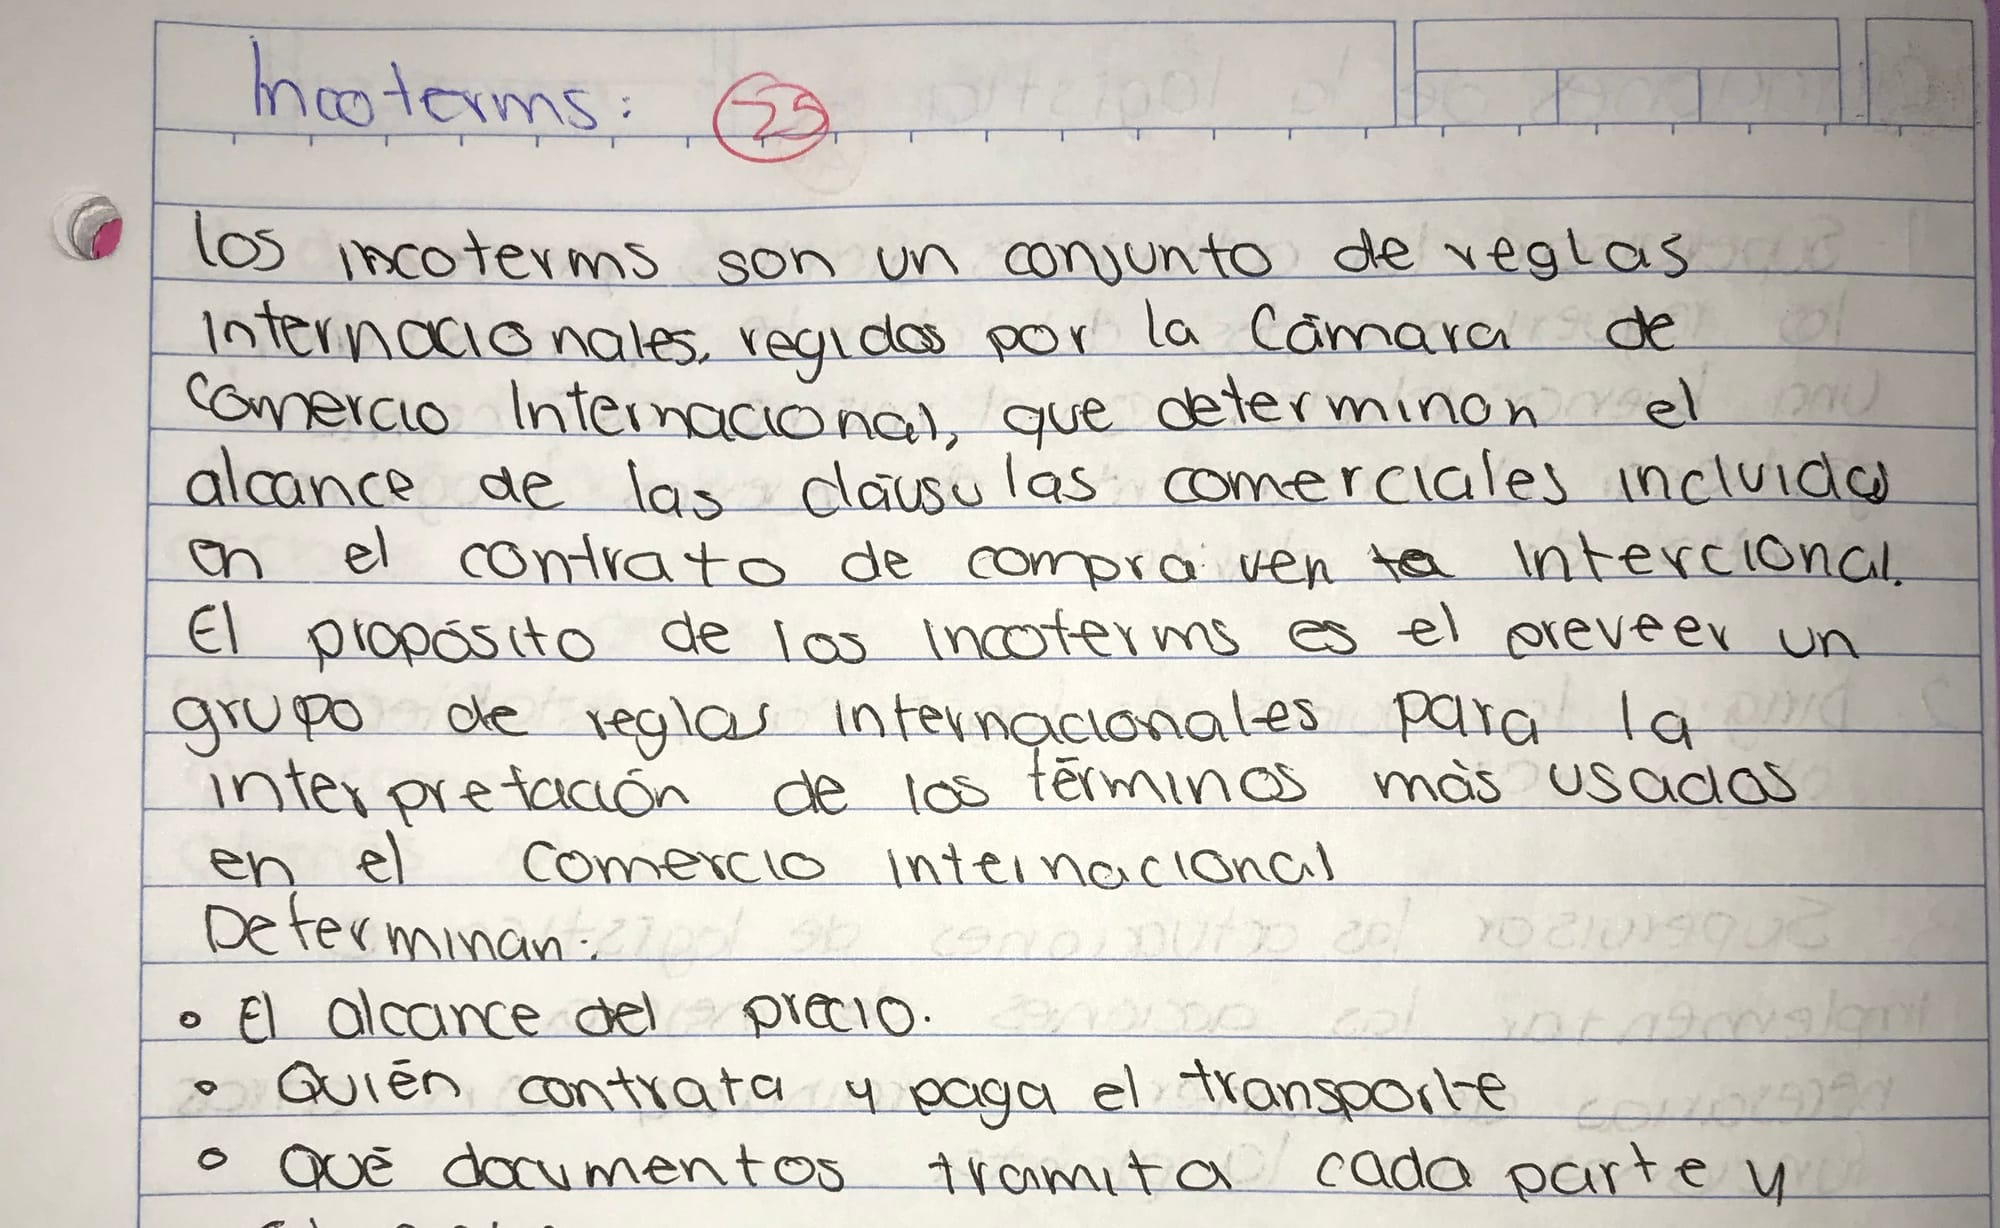 Incoterms: 25
los incoterms son un conjunto de reglas
internacionales, regidos por la Cámara de
Comercio Internacional, que determinan el
alcance de las cláusulas comerciales incluidas
en el contrato de compra venta intercional.
El propósito de los incoterms es el preveer un
grupo de reglas internacionales para la
interpretación de los términos más usados
en el comercio internacional
Determinan:
• El alcance del precio.
• Quién contrata y paga el transporte
• Qué documentos tramita cada parte y